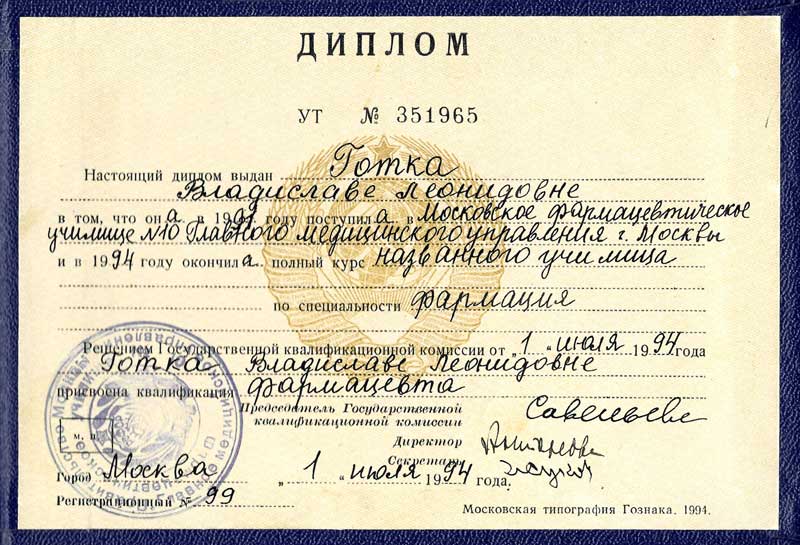 ДИПЛОМ
УТ № 351965
Настоящий диплом выдан Готка
Владиславе Леонидовне
в том, что она в 19 году поступила в Московское фармацевтическое
училище №10 Главного медицинского управления г. Москвы
и в 1994 году окончила полный курс названного училища
по специальности фармация
Решением Государственной квалификационной комиссии от „1" июля 1994 года
Готка Владиславе Леонидовне
присвоена квалификация фармацевта
Председатель Государственной
квалификационной комиссии
Директор
Секретарь
м. п.
Город Москва „1" июля 1994 года.
Регистрационный № 99
Московская типография Гознака. 1994.